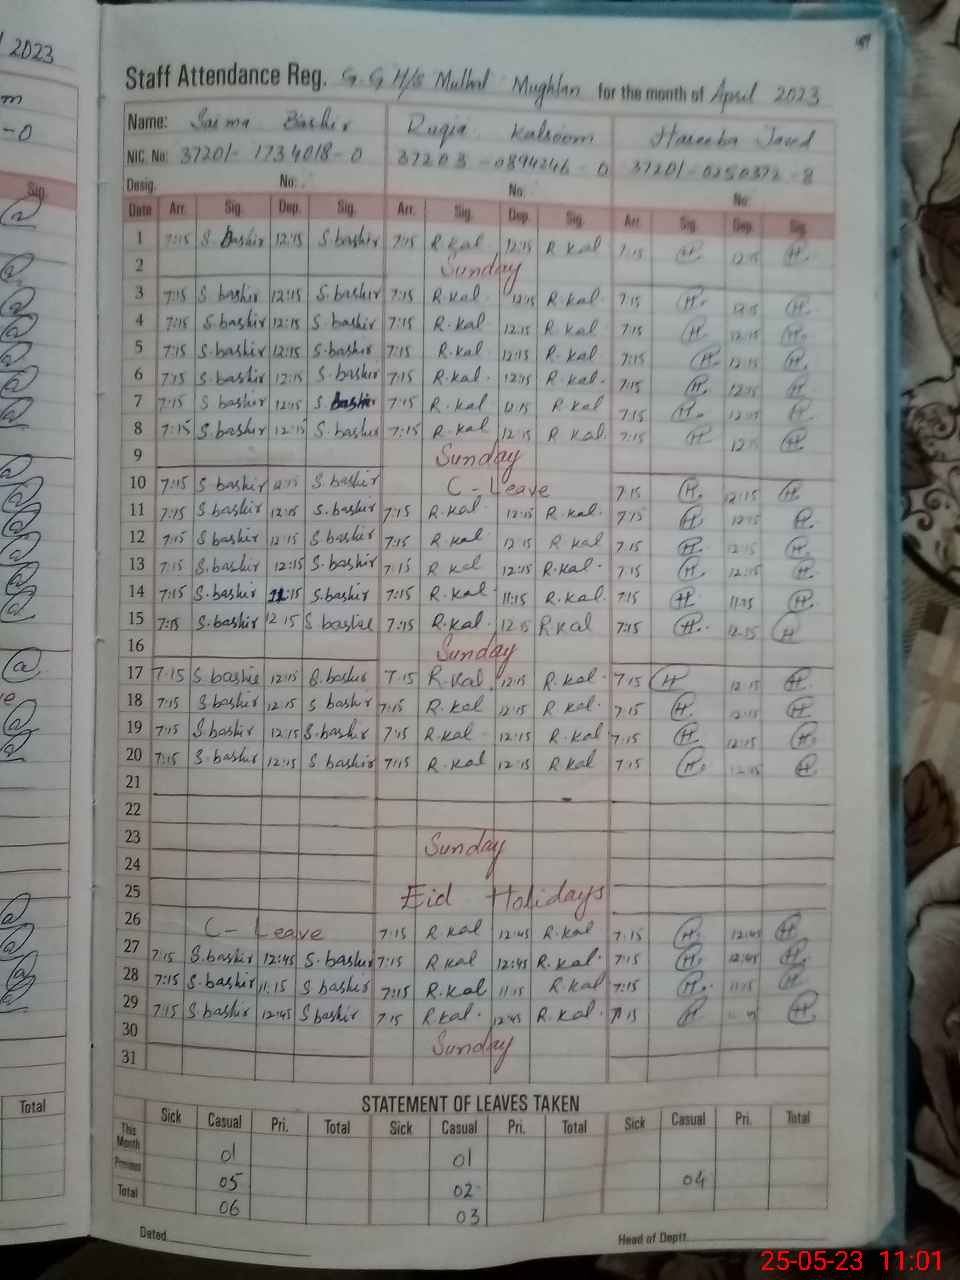 2023
m
-0
Sig.
Total
Staff Attendance Reg. G.G H/S Mulhal Mughlan for the month of April 2023
Name: Saima Bashir Ruqia Kalsoom Haseeba Javed
NIC. No: 37201-1734018-0 37203-0894246-0 37201-0250372-8
Desig. No: No: No:
Date Arr. Sig. Dep. Sig. Arr. Sig. Dep. Sig. Arr. Sig. Dep. Sig.
1 7:15 S. Bashir 12:15 S.bashir 7:15 R kal 12:15 R kal 7:15 H. 12:15 H.
2 Sunday
3 7:15 S bashir 12:15 S.bashir 7:15 R.kal. 12:15 R kal. 7:15 H. 12:15 H.
4 7:15 S.bashir 12:15 S.bashir 7:15 R.kal 12:15 R.kal. 7:15 H. 12:15 H.
5 7:15 S.bashir 12:15 S.bashir 7:15 R.kal. 12:15 R.kal. 7:15 H. 12:15 H.
6 7:15 S.bashir 12:15 S.bashir 7:15 R.kal. 12:15 R kal. 7:15 H. 12:15 H.
7 7:15 S bashir 12:15 S.bashir 7:15 R.kal 12:15 R kal 7:15 H. 12:15 H.
8 7:15 S.bashir 12:15 S.bashir 7:15 R.kal 12:15 R kal. 7:15 H. 12:15 H.
9 Sunday
10 7:15 S bashir 12:15 S bashir C-Leave 7:15 H. 12:15 H
11 7:15 S bashir 12:15 S.bashir 7:15 R.kal. 12:15 R.kal. 7:15 H 12:15 H.
12 7:15 S bashir 12:15 S bashir 7:15 R kal 12:15 R kal 7:15 H. 12:15 H.
13 7:15 S.bashir 12:15 S.bashir 7:15 R kal 12:15 R.kal. 7:15 H 12:15 H.
14 7:15 S.bashir 11:15 S.bashir 7:15 R.kal. 11:15 R.kal. 7:15 H 11:15 H.
15 7:15 S.bashir 12 15 S bashir 7:15 R.kal. 12:15 R kal 7:15 H. 12:15 H
16 Sunday
17 7:15 S bashir 12:15 S.bashir 7:15 R.kal. 12:15 R.kal. 7:15 H 12:15 H.
18 7:15 S bashir 12:15 S bashir 7:15 R.kal 12:15 R kal. 7:15 H. 12:15 H.
19 7:15 S.bashir 12:15 S.bashir 7:15 R.kal 12:15 R kal 7:15 H. 12:15 H.
20 7:15 S.bashir 12:15 S bashir 7:15 R.kal 12:15 R kal 7:15 H. 12:15 H.
21
22
23 Sunday
24
25 Eid Holidays
26 C-Leave 7:15 R kal 12:45 R.kal 7:15 H. 12:45 H.
27 7:15 S.bashir 12:45 S.bashir 7:15 R kal 12:45 R.kal. 7:15 H. 12:45 H.
28 7:15 S.bashir 11:15 S bashir 7:15 R.kal 11:15 R.kal 7:15 H. 11:15 H.
29 7:15 S bashir 12:45 S bashir 7:15 R.kal. 12:45 R.kal. 7:15 H H.
30 Sunday
31
STATEMENT OF LEAVES TAKEN
Sick Casual Pri. Total Sick Casual Pri. Total Sick Casual Pri. Total
This Month 01 01
Previous 05 02 04
Total 06 03
Dated Head of Deptt.
25-05-23 11:01